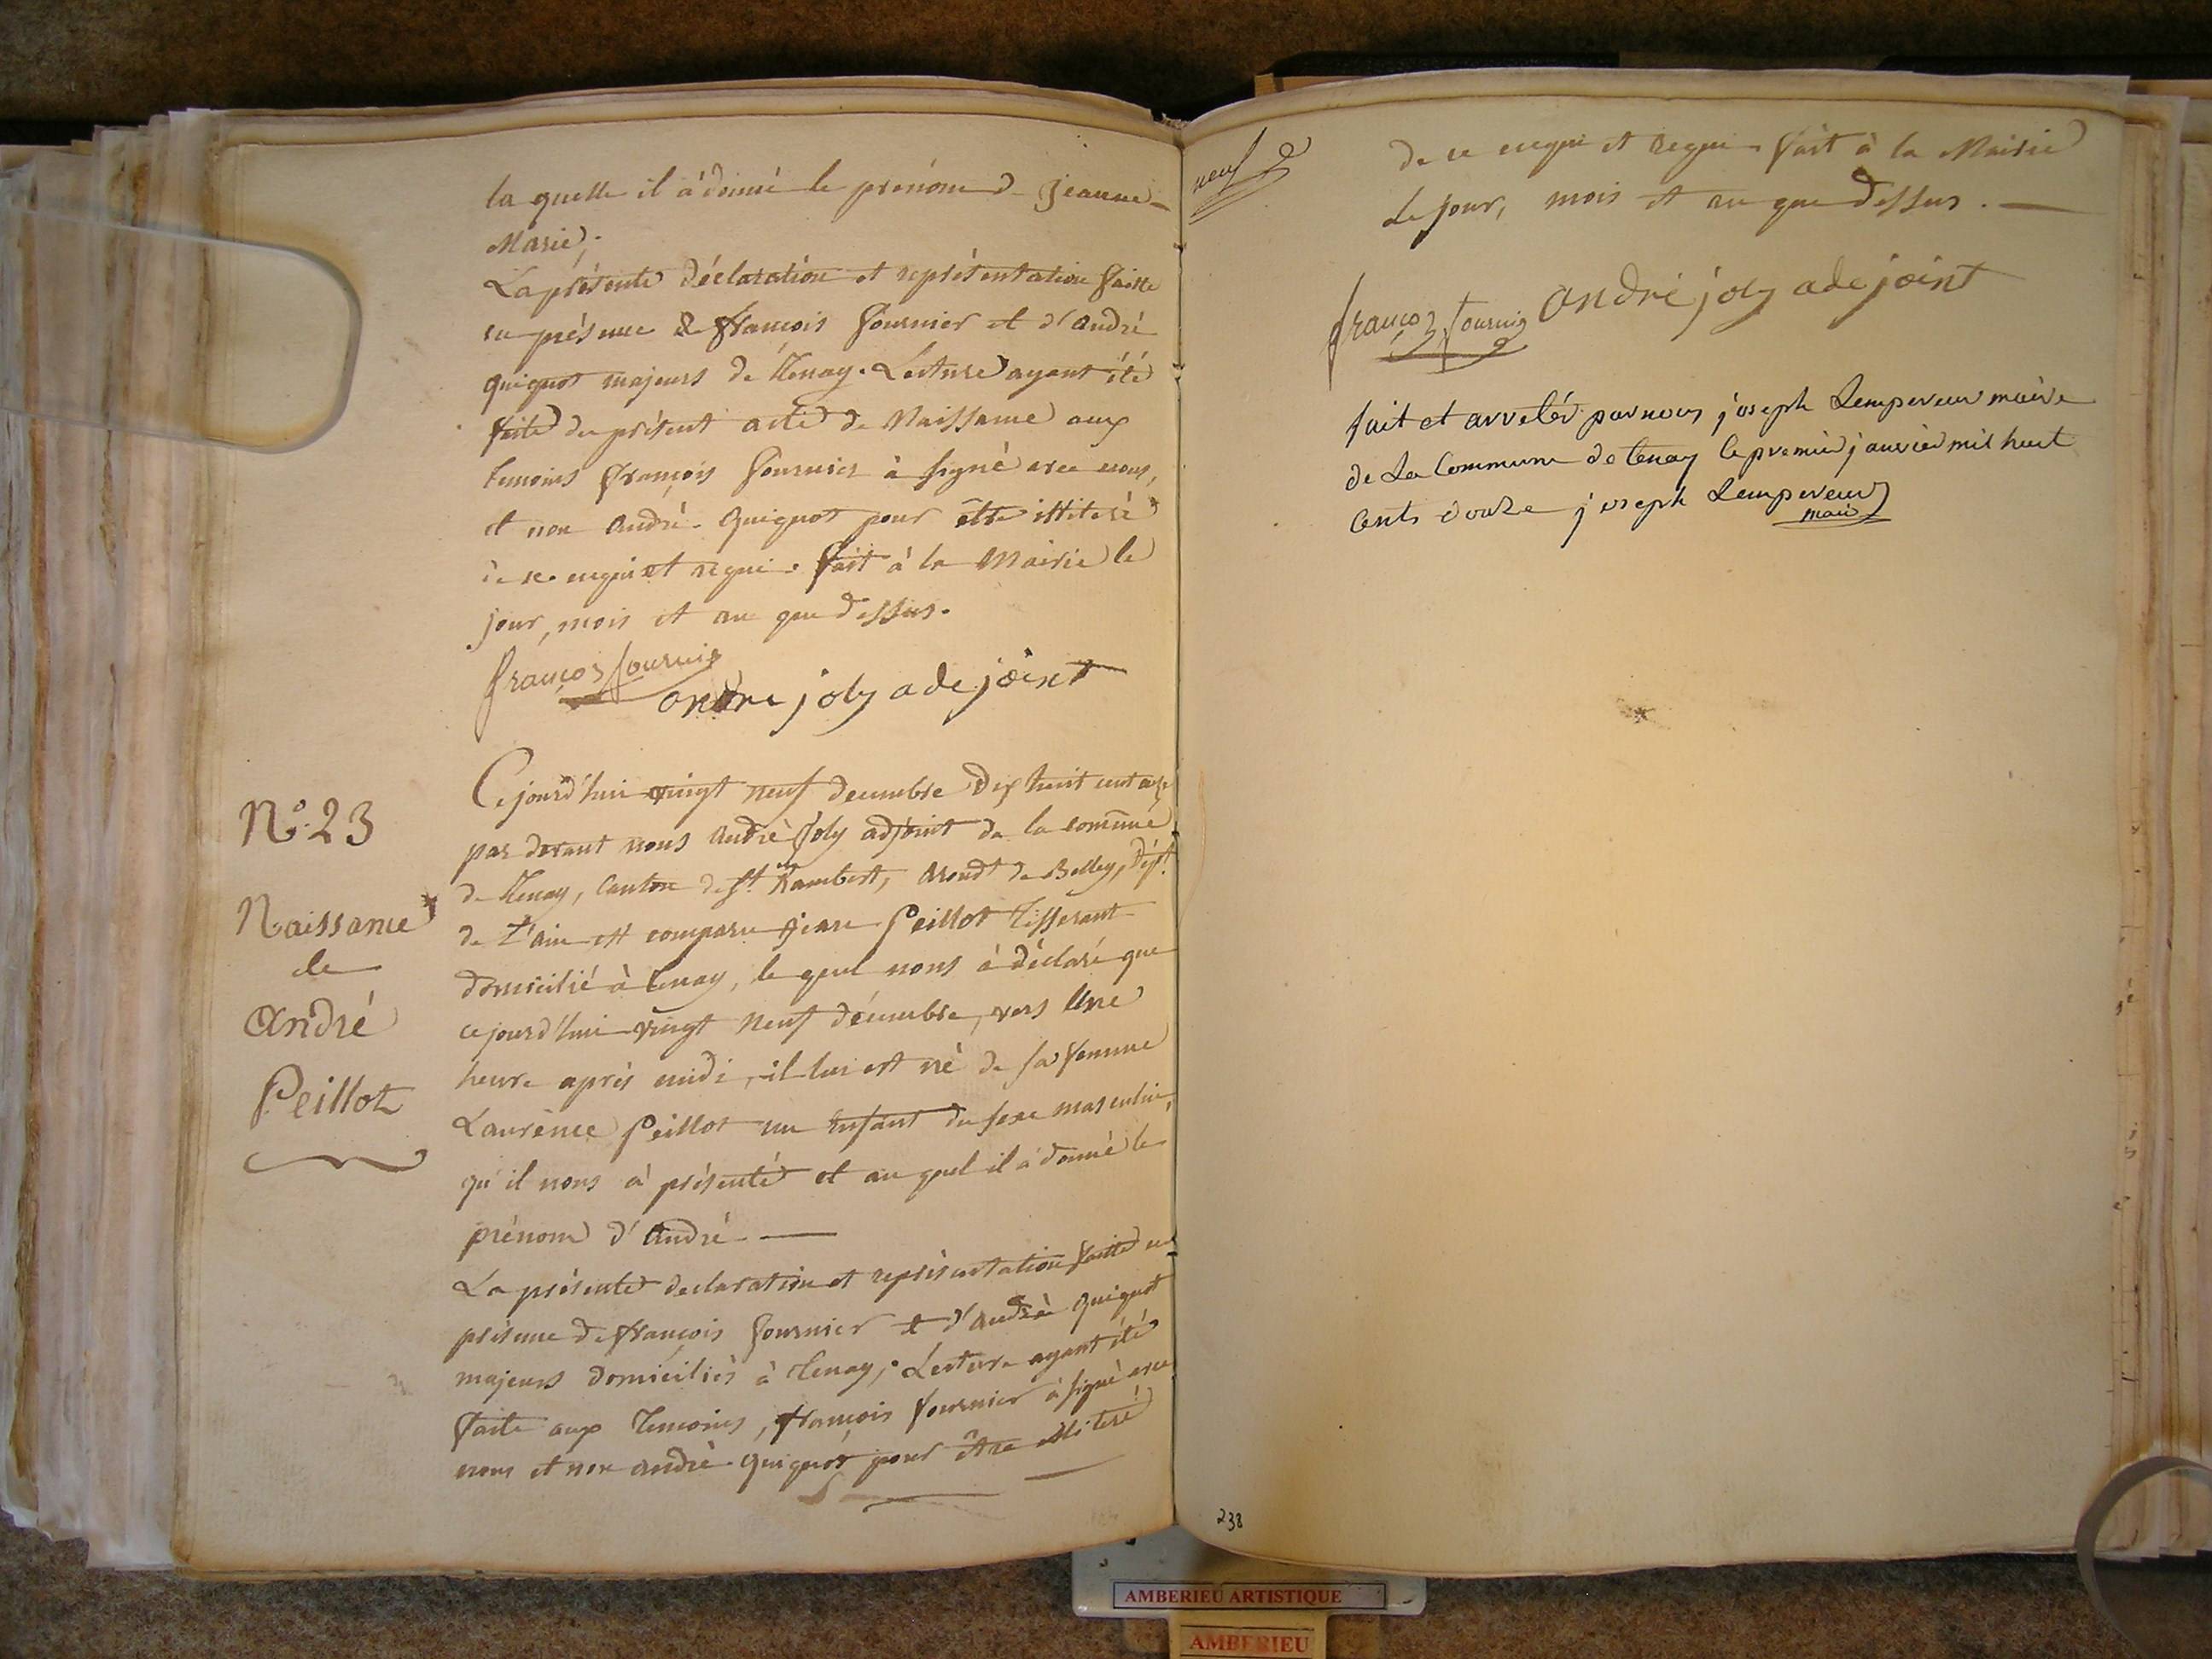 la quelle il à donné le prénom d Jeanne-
Marie;
La présente déclaration et représentation faitte
en présence de François Fournier et d'André
Quignot majeurs de Tenay. Lecture ayant été
faite du présent acte de Naissance aux
temoins François Fournier à signé avec nous,
et non André Quignot pour être illiteré
de ce enquis et requis. Fait à la Mairie le
jour, mois et an que dessus.
françois fournier
andre joly adejoint
N° 23
Naissance
de
André
Peillot
Cejourd'hui vingt neuf decembre dix huit cent onze
par devant nous André Joly adjoint de la comune
de Tenay, Canton de St Rambert, Arondt de Belley, Dépt
de L'ain est comparu Jean Peillot Tisserant
domicilié à Tenay, le quel nous à déclaré que
cejourd'hui vingt neuf décembre, vers Une
heure après midi, il lui est né de sa femme
Laurènce Peillot un Enfant du sexe masculin,
qu'il nous à présenté et au quel il à donné le
prénom d'André
La présente declaration et représentation faitte en
présence de François Fournier et d'André Quignot
majeurs domiciliés à Tenay; Lecture ayant été
faite aux Temoins, François Fournier à signé avec
nous et non André Quignot pour être illiteré
neuf
de ce enquis et requis. Fait à la Mairie
Le jour, mois et an que dessus.
françois fournier
andré joly adejoint
fait et arretér par nous joseph Lempereur maire
de La Commune de tenay le premier janvier mil huit
Cents douze joseph Lempereur
maire
238
AMBERIEU ARTISTIQUE
AMBERIEU